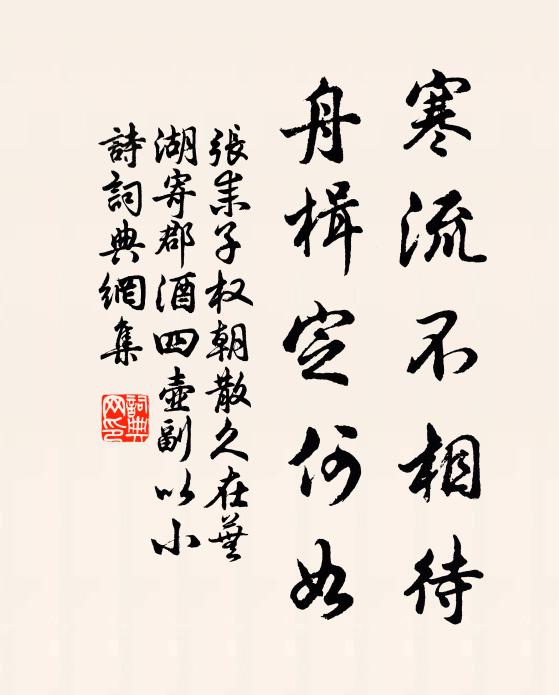 寒流不相待
舟楫定何如
張朱子权朝散久在蕪
湖寄郡酒四壺副以小
詩詞典網集
詞典網印